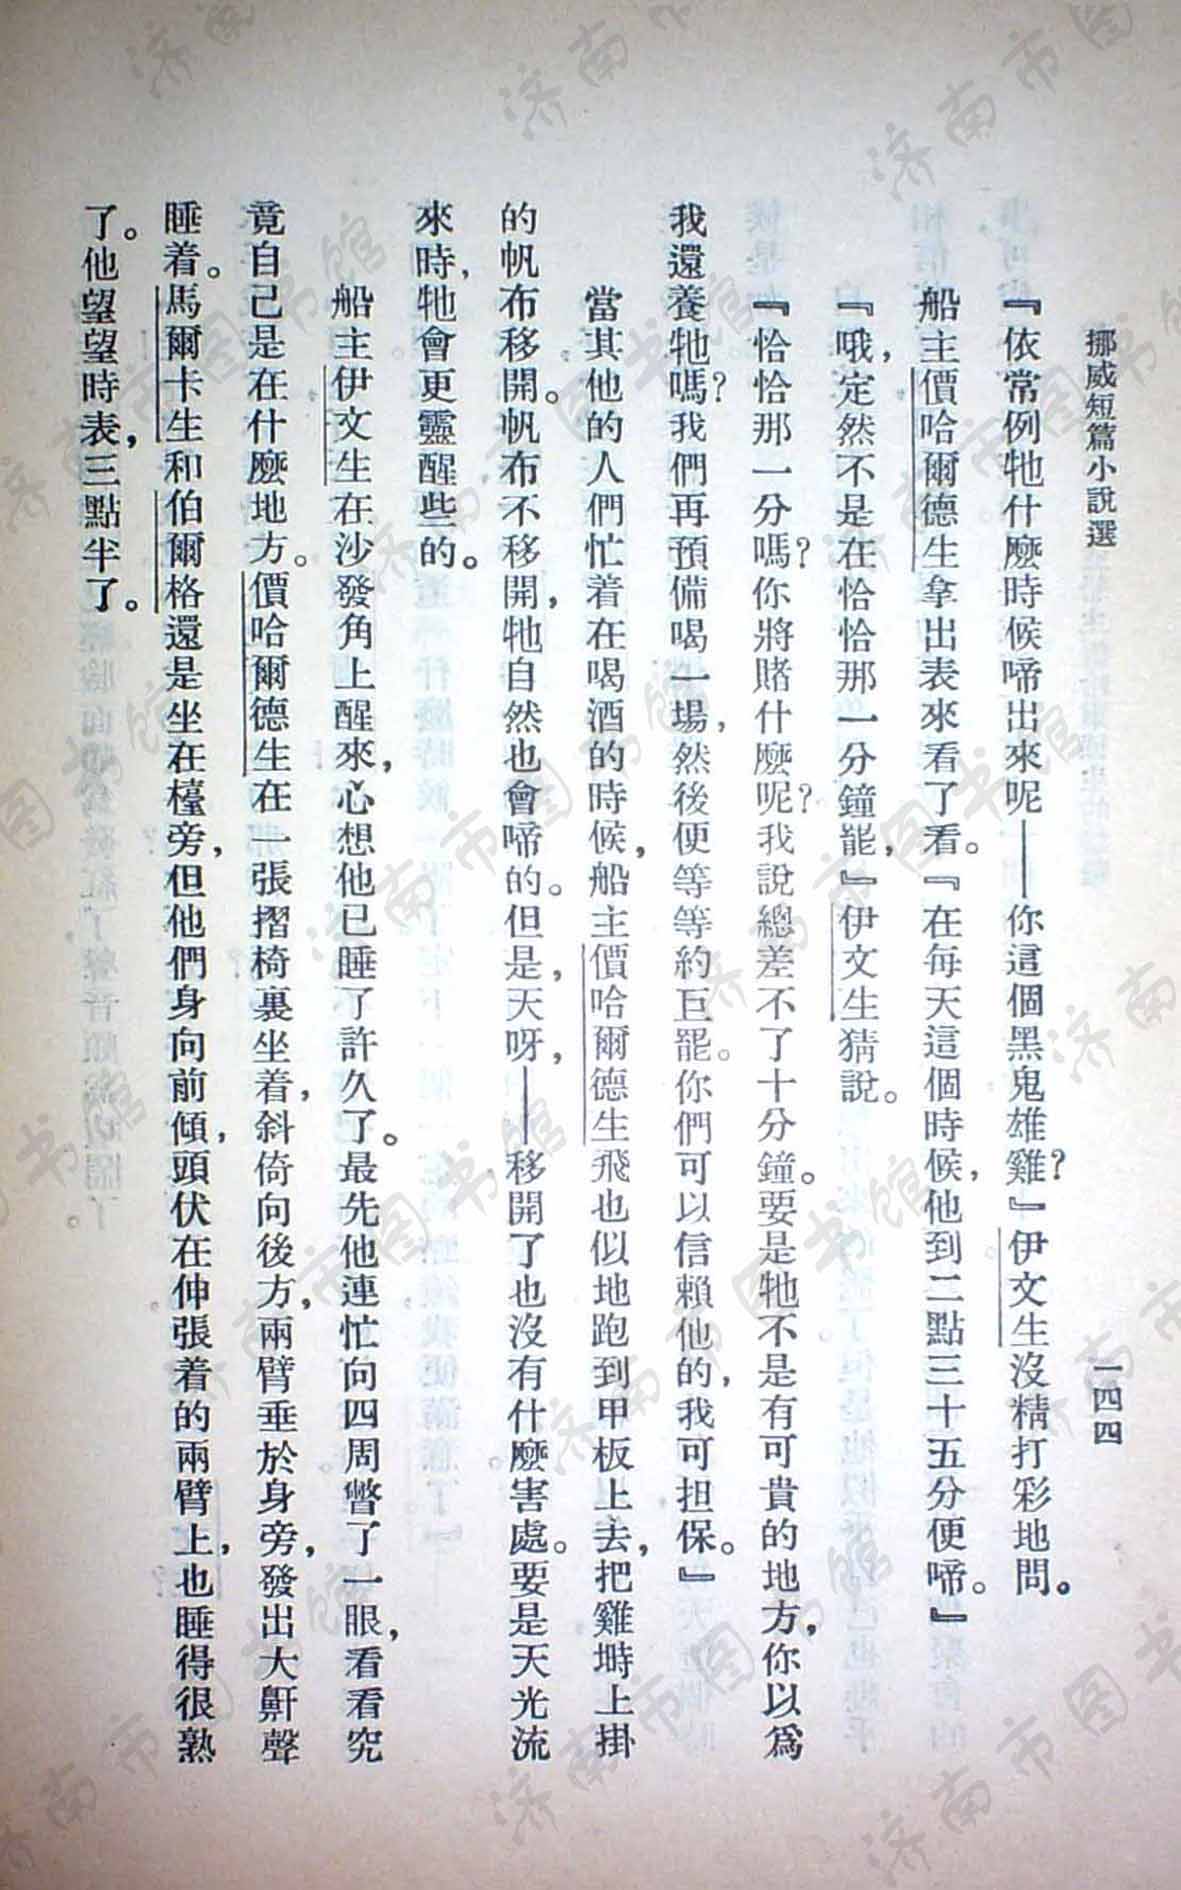 挪威短篇小說選
一四四
『依常例牠什麼時候啼出來呢——你這個黑鬼雄雞？』伊文生沒精打彩地問。
船主價哈爾德生拿出表來看了看。『在每天這個時候，他到二點三十五分便啼。』
『哦，定然不是在恰恰那一分鐘罷，』伊文生猜說。
『恰恰那一分嗎？你將賭什麼呢？我說總差不了十分鐘。要是牠不是有可貴的地方，你以爲
我還養牠嗎？我們再預備喝一場，然後便等等約巨罷。你們可以信賴他的，我可担保。』
當其他的人們忙着在喝酒的時候，船主價哈爾德生飛也似地跑到甲板上去，把雞塒上掛
的帆布移開。帆布不移開，牠自然也會啼的。但是，天呀，——移開了也沒有什麼害處。要是天光流
來時，牠會更靈醒些的。
船主伊文生在沙發角上醒來，心想他已睡了許久了。最先他連忙向四周瞥了一眼，看看究
竟自己是在什麼地方。價哈爾德生在一張摺椅裏坐着，斜倚向後方，兩臂垂於身旁，發出大鼾聲
睡着。馬爾卡生和伯爾格還是坐在檯旁，但他們身向前傾，頭伏在伸張着的兩臂上，也睡得很熟
了。他望望時表，三點半了。
濟南市图书馆